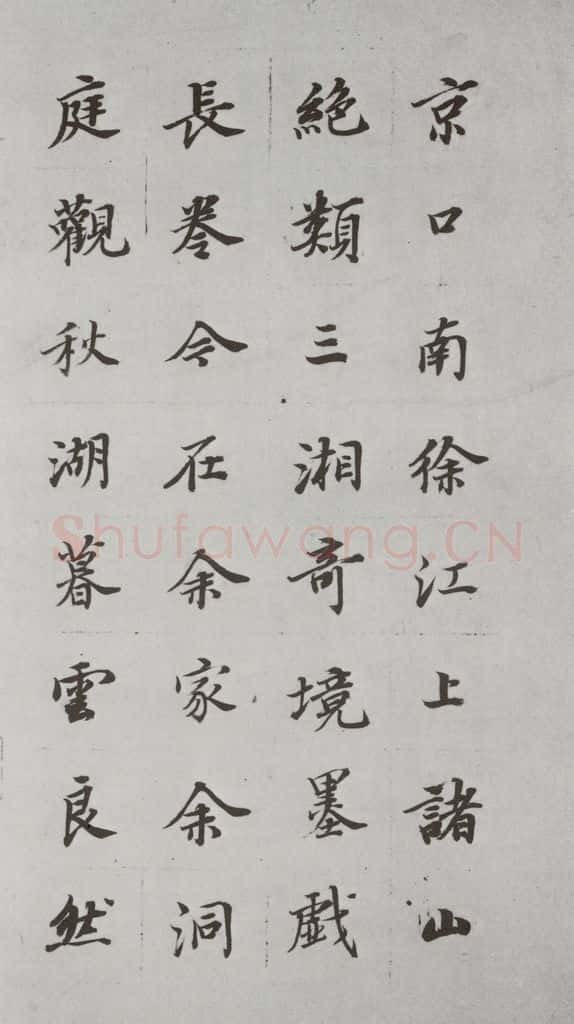 京口南徐江上諸山
絶類三湘奇境墨戲
長卷今在余家余洞
庭觀秋湖暮雲良然
Shufawang.CN